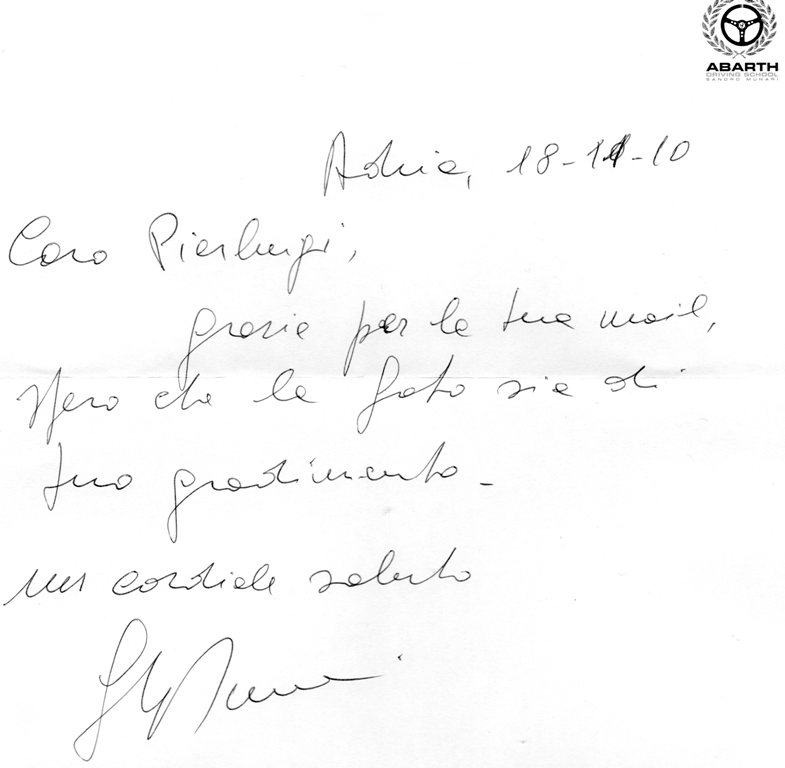 ABARTH
DRIVING SCHOOL
SANDRO MUNARI
Adria, 18-11-10
Caro Pierluigi,
grazie per la tua mail,
spero che la foto sia di
tuo gradimento-
un cordiale saluto